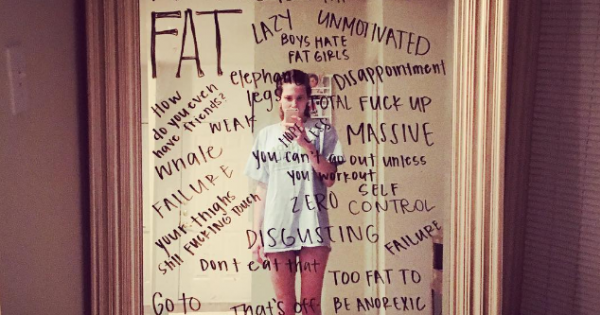 FAT
LAZY
UNMOTIVATED
BOYS HATE
FAT GIRLS
elephant
legs
DISAPPOINTMENT
HOW
do you even
have friends?
WEAK
TOTAL FUCK UP
HOPELESS
MASSIVE
WHALE
you can't go out unless
you workout
FAILURE
ZERO SELF
CONTROL
your thighs
still FUCKING TOUCH
DISGUSTING
FAILURE
DON't eat that
TOO FAT TO
BE ANOREXIC
GO TO
THAT'S OFF